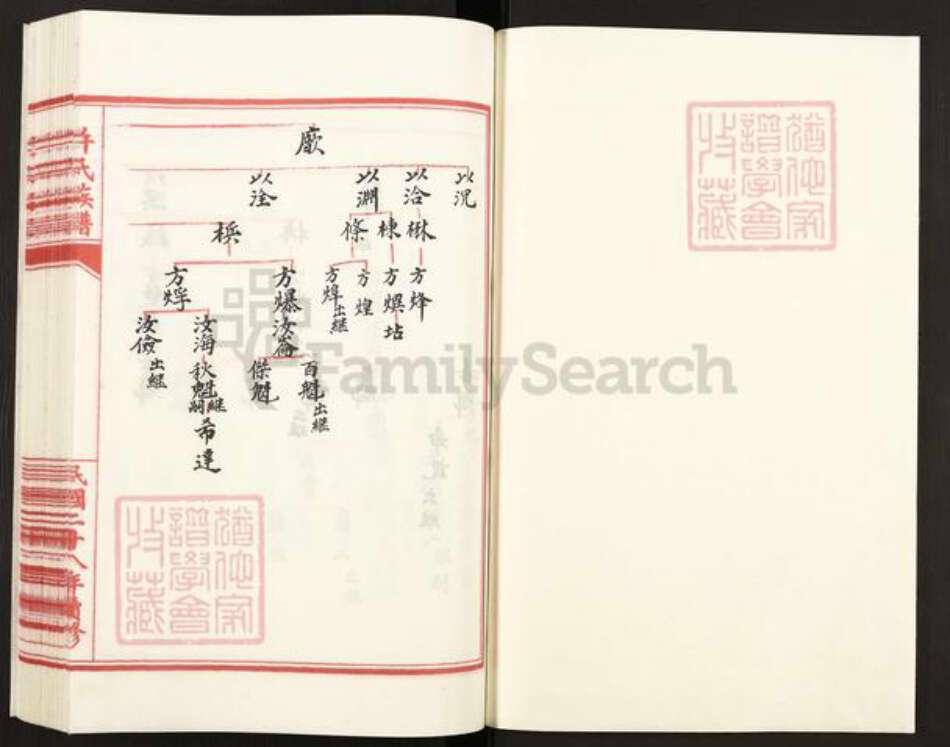 廞
以況
以洽
以淵
以淦
楙
棟
條
梹
方烽
方熉
坫
方煌
方煒出継
方爆
方焊
汝崙
汝海
汝儉出継
百魁出継
傑魁
秋魁継嗣
希達
許氏族譜
民國二十八年續修
猶他家譜學會收藏
猶他家譜學會收藏
FamilySearch